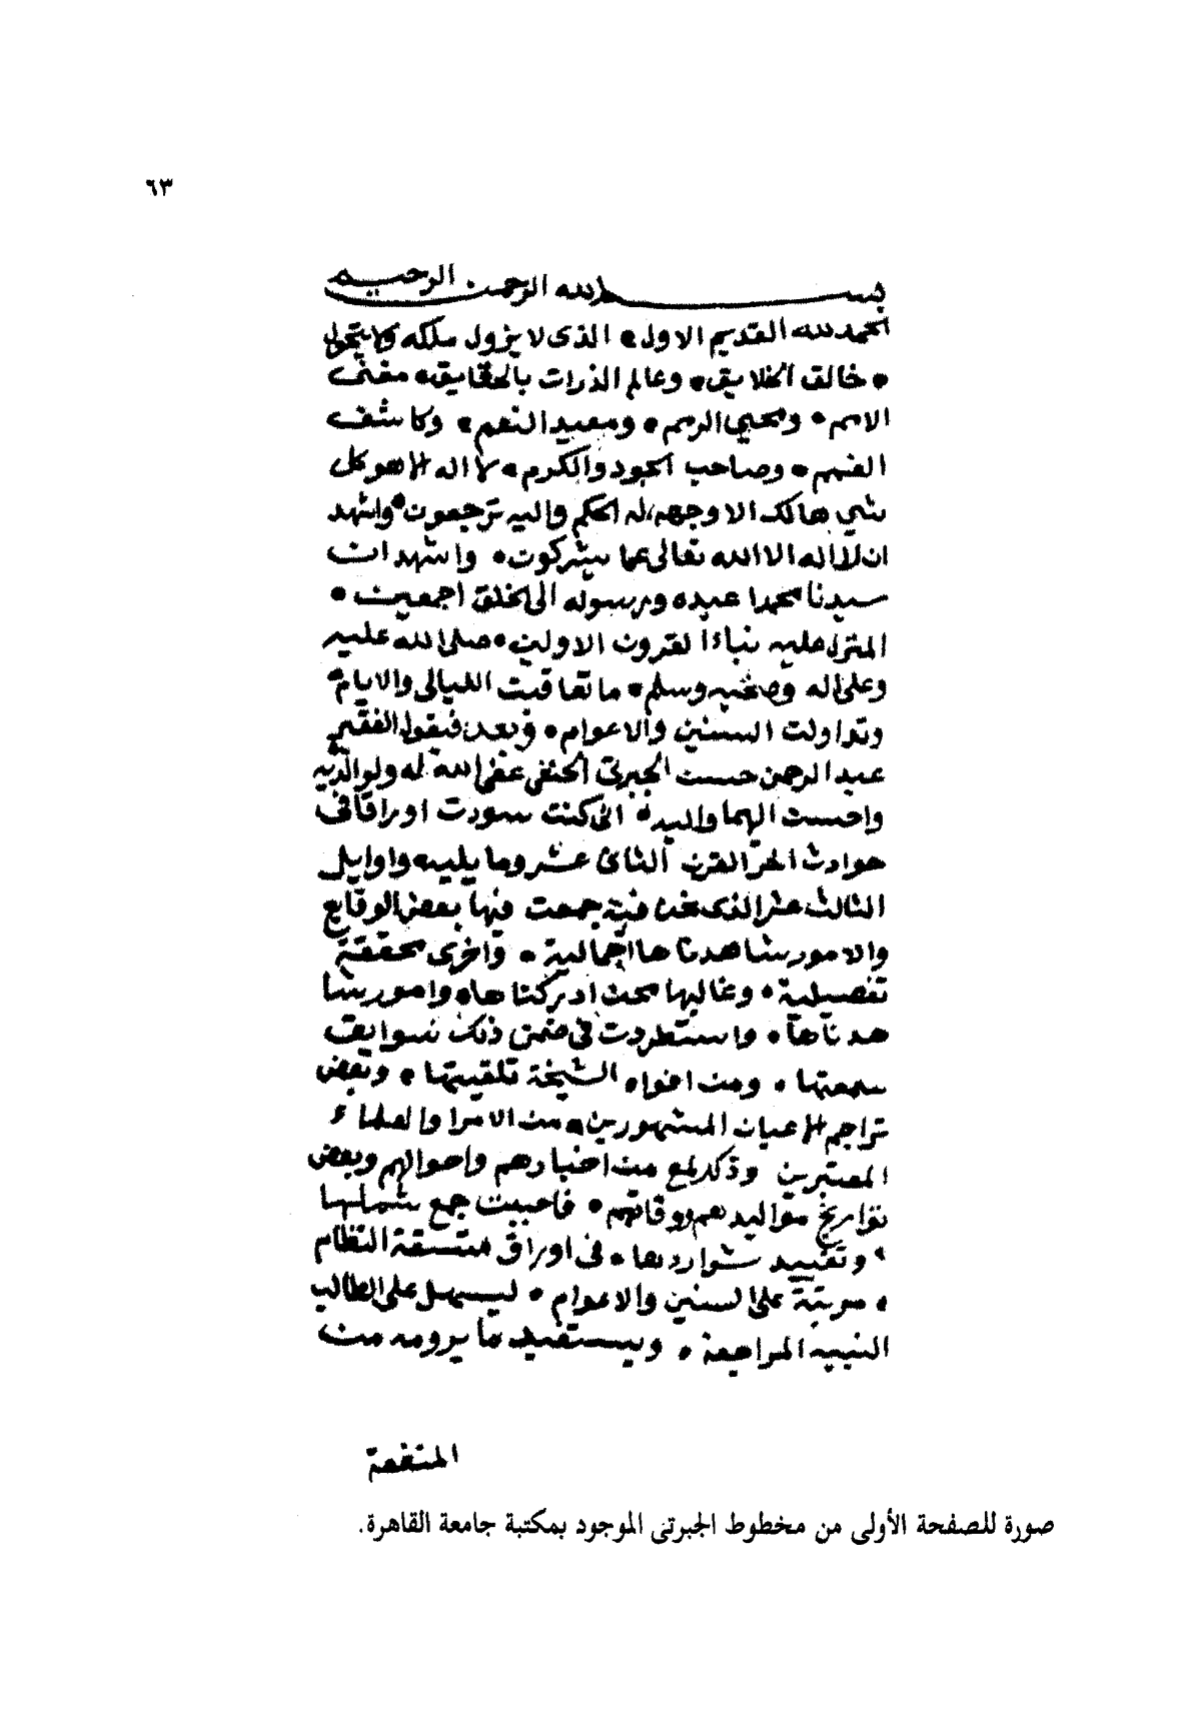 ٦٣
بسم الله الرحمن الرحيم
الحمد لله القديم الاول • الذى لا يزول ملكه ولا يتحول
• خالق الخلايق • وعالم الذرات بالحقايق • مفنى
الامم • ومحيي الرمم • ومعيد النعم • وكاشف
الغمم • وصاحب الجود والكرم • لا اله الا هو كل
شي هالك الا وجهه له الحكم واليه ترجعون • واشهد
ان لا اله الا الله تعالى عما يشركون • واشهد ان
سيدنا محمدا عبده ورسوله الى الخلق اجمعين •
المنزل عليه نباء القرون الاولين • صلى الله عليه
وعلى اله وصحبه وسلم • ما تعاقبت الليالى والايام
وتداولت السنين والاعوام • وبعد فيقول الفقير
عبد الرحمن حسن الجبرتى الحنفى غفر الله له ولوالديه
واحسن اليهما واليه • انى كنت سودت اوراقا فى
حوادث اخر القرن الثانى عشر وما يليه واوايل
الثالث عشر الذى نحن فيه جمعت فيها بعض الوقايع
والامور شاهدناها اجمالية • واخرى محققة
تفصيلية • وغالبها محن ادركناها • وامور شا
هدناها • واستطردت فى ضمن ذلك سوابق
سمعتها • ومن افواه الشيخة تلقيتها • وبعض
تراجم الاعيان المشهورين • من الامرا والعلماء
المعتبرين وذكر لمع من اخبارهم واحوالهم وبعض
تواريخ مواليدهم ووفاتهم • فاحببت جمع شملها
• وتقييد شواردها • فى اوراق متسقة النظام
• مرتبة على السنين والاعوام • ليسهل على الطالب
النبيه المراجعة • ويستفيد ما يرومه من
المنفعة
صورة للصفحة الأولى من مخطوط الجبرتى الموجود بمكتبة جامعة القاهرة.